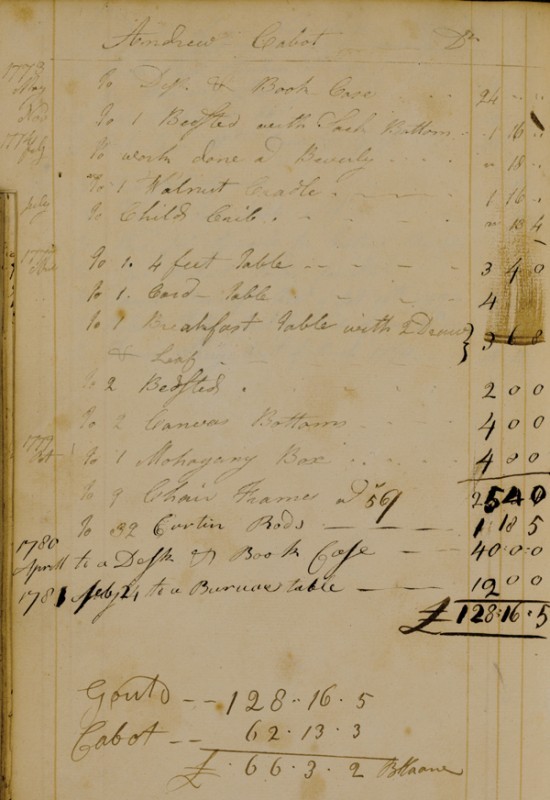 Andrew Cabot Dr
1773 May To Desk & Book Case 24 " "
Nod To 1 Bedsted with Sack Bottom 1 16 "
1774 July To work done a Beverly " 18 "
To 1 Walnut Cradle 1 16
July To Childs Crib " 13 4
To 1. 4 feet table 3 4 0
To 1. Card-table 4
To 1 Breakfast table with 2 Draws } 3 6 8
& Leaf
To 2 Bedsted 2 0 0
To 2 Canvas Bottoms 4 0 0
1777 Oct To 1 Mohagany Box 4 0 0
To 9 Chair Frames a 56/ 25 4 0
To 32 Curtin Rods 1 18 5
1780 Aprill to a Desk & Book Case 40:0:0
1781 Feby 24 to a Buruae table 12 0 0
£128:16:5
Gould -- 128.16.5
Cabot -- 62.13.3
£.66.3.2